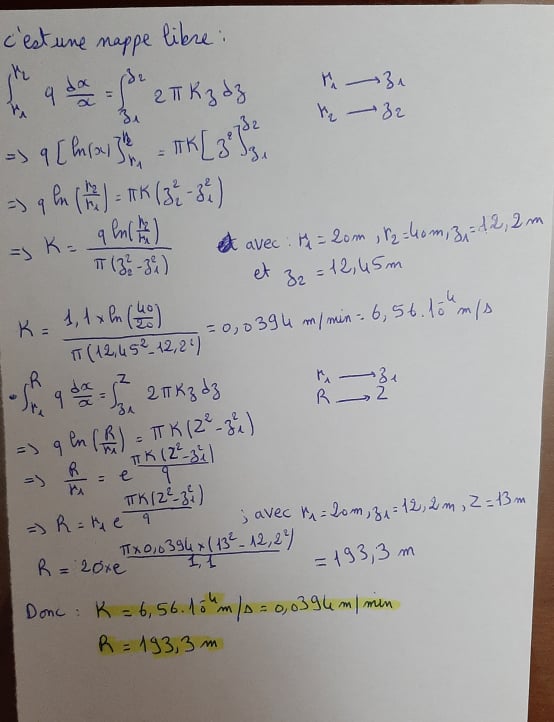 c'est une nappe libre :
∫_{r₁}^{r₂} q dx/x = ∫_{z₁}^{z₂} 2πKz dz    r₁ → z₁
r₂ → z₂
=> q [ln(x)]_{r₁}^{r₂} = πK [z²]_{z₁}^{z₂}
=> q ln(r₂/r₁) = πK(z₂² - z₁²)
=> K = q ln(r₂/r₁) / π(z₂² - z₁²)    avec : r₁ = 20m, r₂ = 40m, z₁ = 12,2m
et z₂ = 12,45m
K = 1,1 × ln(40/20) / π(12,45² - 12,2²) = 0,0394 m/min = 6,56.10⁻⁴ m/s
• ∫_{r₁}^{R} q dx/x = ∫_{z₁}^{Z} 2πKz dz    r₁ → z₁
R → Z
=> q ln(R/r₁) = πK(Z² - z₁²)
=> R/r₁ = e^{πK(Z² - z₁²)/q}
=> R = r₁ e^{πK(Z² - z₁²)/q} ; avec r₁ = 20m, z₁ = 12,2m, Z = 13m
R = 20 × e^{π×0,0394×(13² - 12,2²)/1,1} = 193,3 m
Donc : K = 6,56.10⁻⁴ m/s = 0,0394 m/min
R = 193,3 m